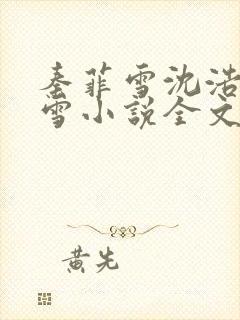 秦菲雪沈浩
雪小说全文
黄先